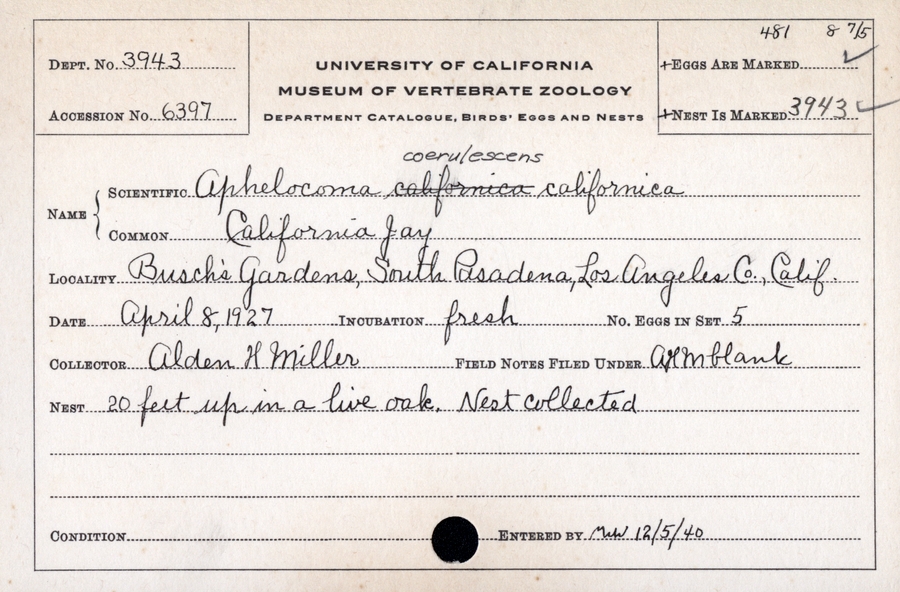 481 8 7/5
DEPT. NO. 3943
UNIVERSITY OF CALIFORNIA
EGGS ARE MARKED ✓
MUSEUM OF VERTEBRATE ZOOLOGY
ACCESSION NO. 6397
DEPARTMENT CATALOGUE, BIRDS' EGGS AND NESTS
NEST IS MARKED 3943 ✓
coerulescens
NAME { SCIENTIFIC Aphelocoma californica californica
COMMON California Jay
LOCALITY Busch's Gardens, South Pasadena, Los Angeles Co., Calif.
DATE April 8, 1927 INCUBATION fresh NO. EGGS IN SET 5
COLLECTOR Alden H Miller FIELD NOTES FILED UNDER AHM blank
NEST 20 feet up in a live oak. Nest collected
CONDITION ENTERED BY 12/5/40